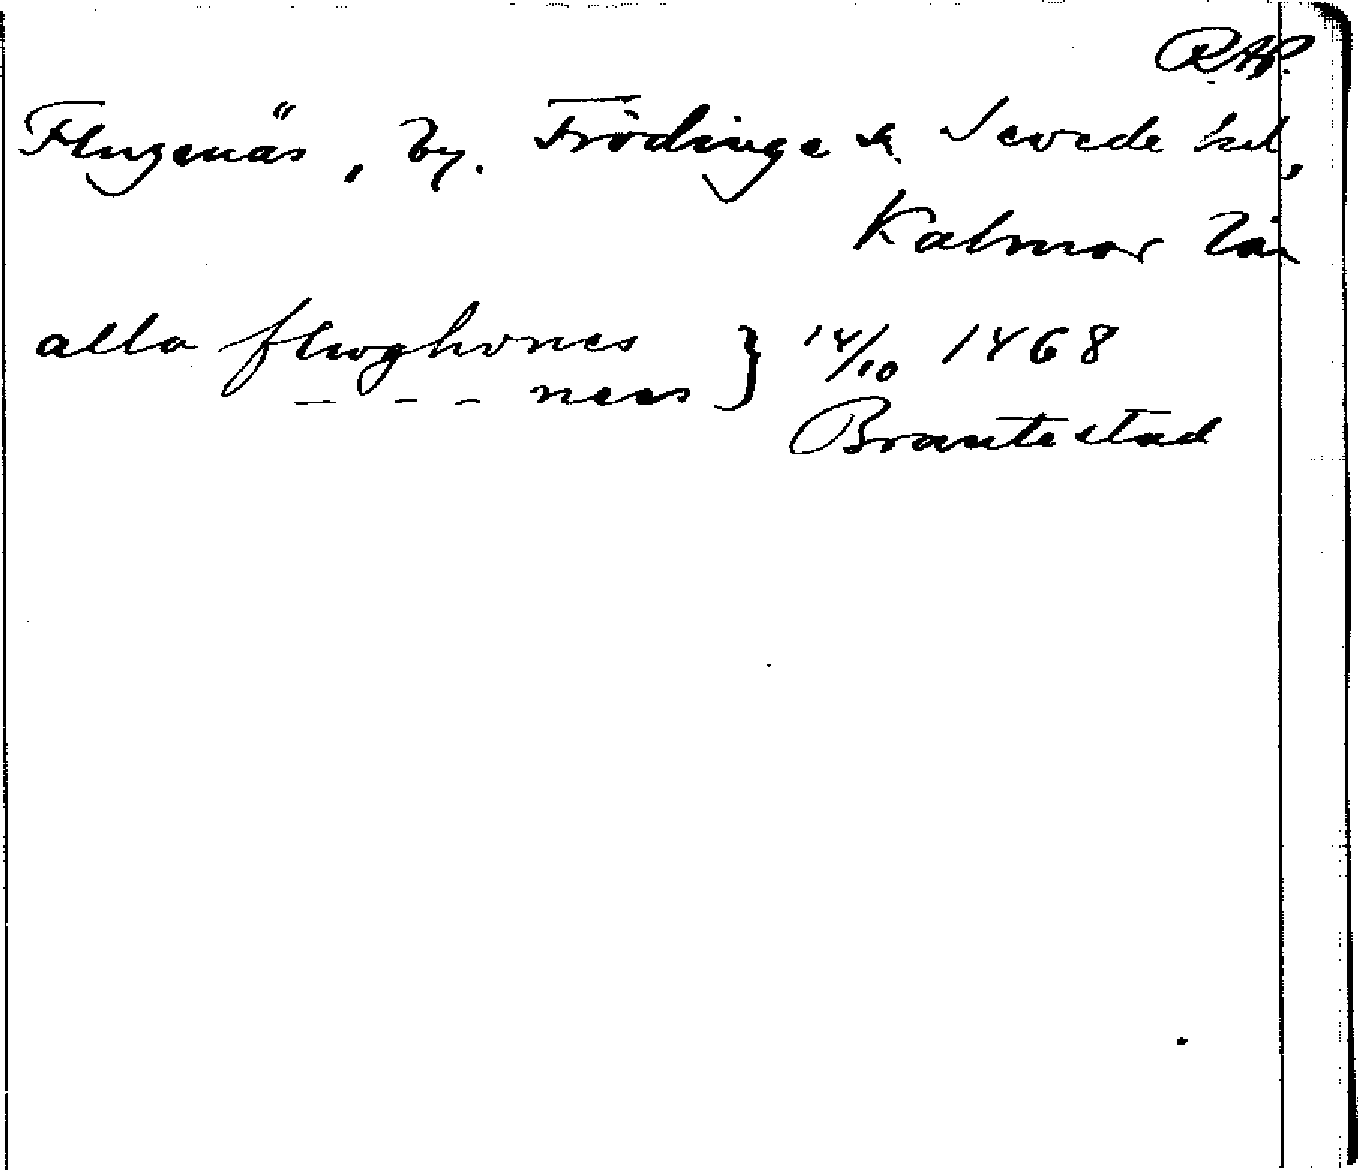 RAP.
Flugenäs, by. Frödinge s. Sevede hd,
Kalmar län
alla flwghones } 14/10 1468
– – – ness
Brantestad